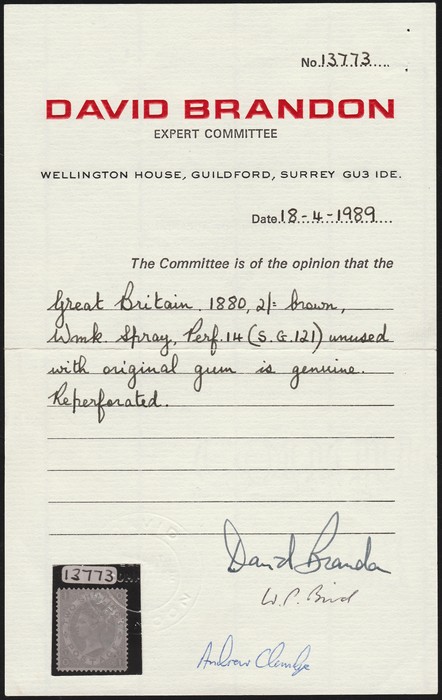 No. 13773
DAVID BRANDON
EXPERT COMMITTEE
WELLINGTON HOUSE, GUILDFORD, SURREY GU3 1DE.
Date. 18-4-1989
The Committee is of the opinion that the
Great Britain. 1880, 2/- brown,
Wmk. Spray, Perf. 14 (S.G. 121) unused
with original gum is genuine.
Reperforated.
David Brandon
W.P. Bird
13773
Andrew